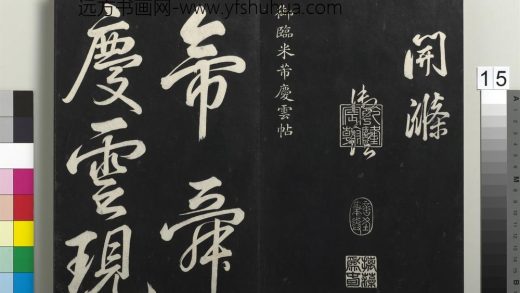 远方书画网-www.yfshuhua.com
開滌
御臨米芾慶雲帖
帝舜
慶雲現
15